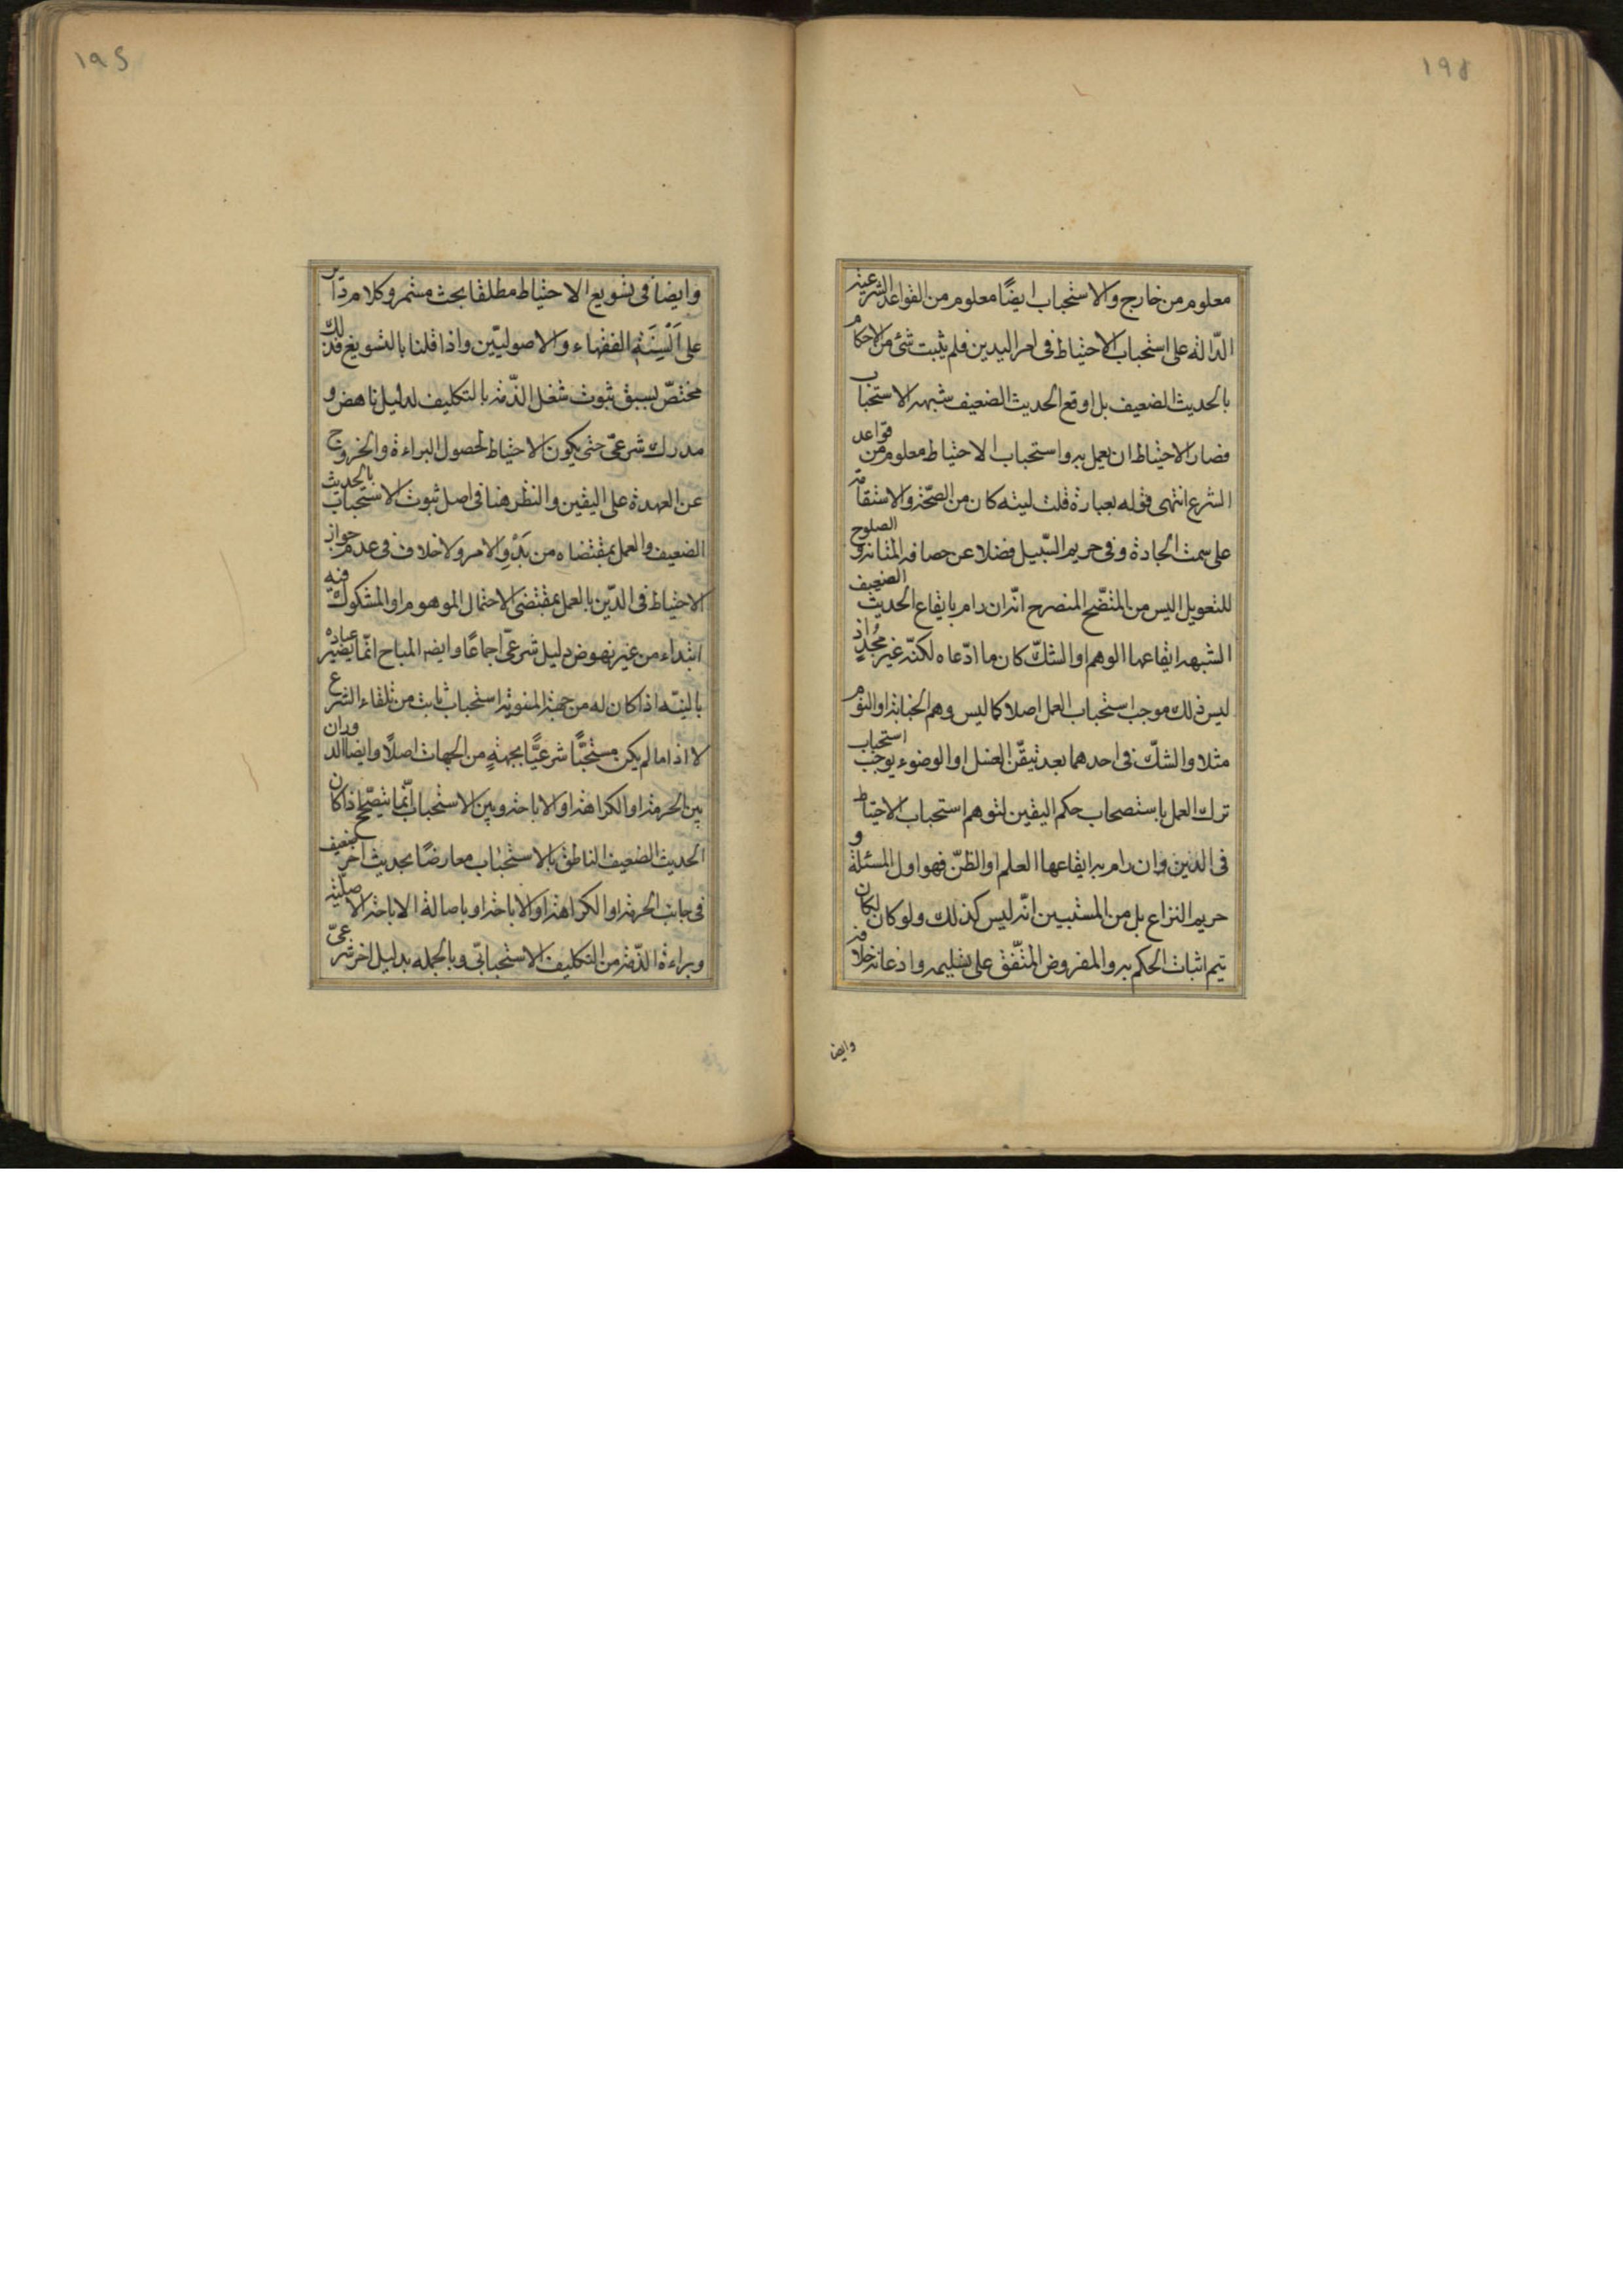 ١٩٤
معلوم من خارج والاستحباب ايضًا معلوم من القواعد الشرعية
الدّالة على استحباب الاحتياط فى امر الدين فلم يثبت شئ من الاحكام
بالحديث الضعيف بل اوقع الحديث الضعيف شبهة الاستحباب
فصار الاحتياط ان يعمل به واستحباب الاحتياط معلوم من قواعد
الشرع انتهى قوله بعبارة قلت ليته كان من الصحّة والاستقامة
على سمت الجادة وفى حريم السّبيل فضلا عن حصافة المتانة و الصلوح
للتعويل اليس من المتضّح المنصرح انّه ان رام بايقاع الحديث الضعيف
الشبهة ايقاعها الوهم او الشكّ كان ما ادّعاه لكنّه غير مُجْدٍ اذ
ليس ذلك موجب استحباب العمل اصلا كما ليس وهم الجنابة او النوم
مثلا والشكّ فى احدهما بعد تيقّن الغسل او الوضوء يوجب استحباب
ترك العمل باستصحاب حكم اليقين لتوهم استحباب الاحتياط
فى الدين وان رام به ايقاعها العلم او الظنّ فهو اول المسئلة و
حريم النزاع بل من المستبين انّه ليس كذلك ولو كان لكان
يتم اثبات الحكم به والمفروض المتّفق على تسليمه واذعانه خلافه
وايضا
١٩٥
وايضا فى تسويغ الاحتياط مطلقا بحث مستمر وكلام دائر
على اَلْسِنَةِ الفقهاء والاصوليّين واذا قلنا بالتسويغ فذلك
مختصّ بسبق ثبوت شغل الذّمة بالتكليف لدليل ناهض و
مدرك شرعىّ حتى يكون الاحتياط لحصول البراءة والخروج
عن العهدة على اليقين والنظر هنا فى اصل ثبوت الاستحباب بالحديث
الضعيف والعمل بمقتضاه من بَدْوِ الامر ولا خلاف فى عدم جواز
الاحتياط فى الدّين بالعمل بمقتضى الاحتمال الموهوم او المشكوك فيه
ابتداء من غير نهوض دليل شرعىّ اجماعًا وايضا المباح انّما يصير عبادة
بالنيّة اذا كان له من جهة المنوية استحباب ثابت من تلقاء الشرع
لا اذا ما لم يكن مستحبًّا شرعيًّا بجهةٍ من الجهات اصلًا وايضا الدوران
بين الحرمة او الكراهة او الاباحة وبين الاستحباب انّما يتصحّح اذا كان
الحديث الضعيف الناطق بالاستحباب معارضًا بحديث اخر ضعيف
فى جانب الحرمة او الكراهة او الاباحة او باصالة الاباحة الاصليّة
وبراءة الذّمة من التكليف الاستحبابىّ وبالجملة بدليل اخر شرعىّ